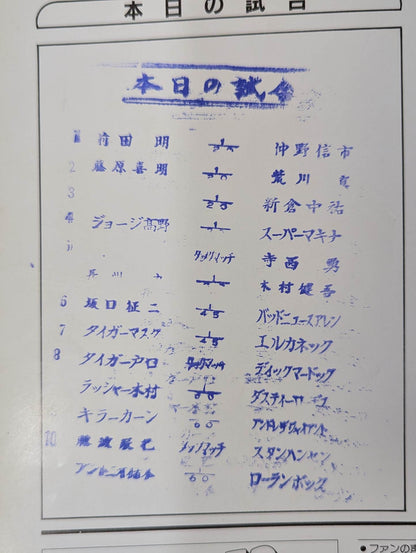 本日の試合
本日の試合
1 前田 明 1/20 沖野信市
2 藤原喜明 1/30 荒川
3 1/20 新倉史祐
4 ジョージ高野 スーパーマキナ
タッグマッチ 寺西 勇
木村健吾
6 坂口征二 1/45 バッドニュースアレン
7 タイガーマスク 1/45 エルカネック
8 タイガー戸口 タッグマッチ ディックマードック
ラッシャー木村 1/60 ダスティー
キラーカーン 60 アンドレザジャイアント
10 藤波辰巳 タッグマッチ スタンハンセン
1/60 ローランボック
●ファンの